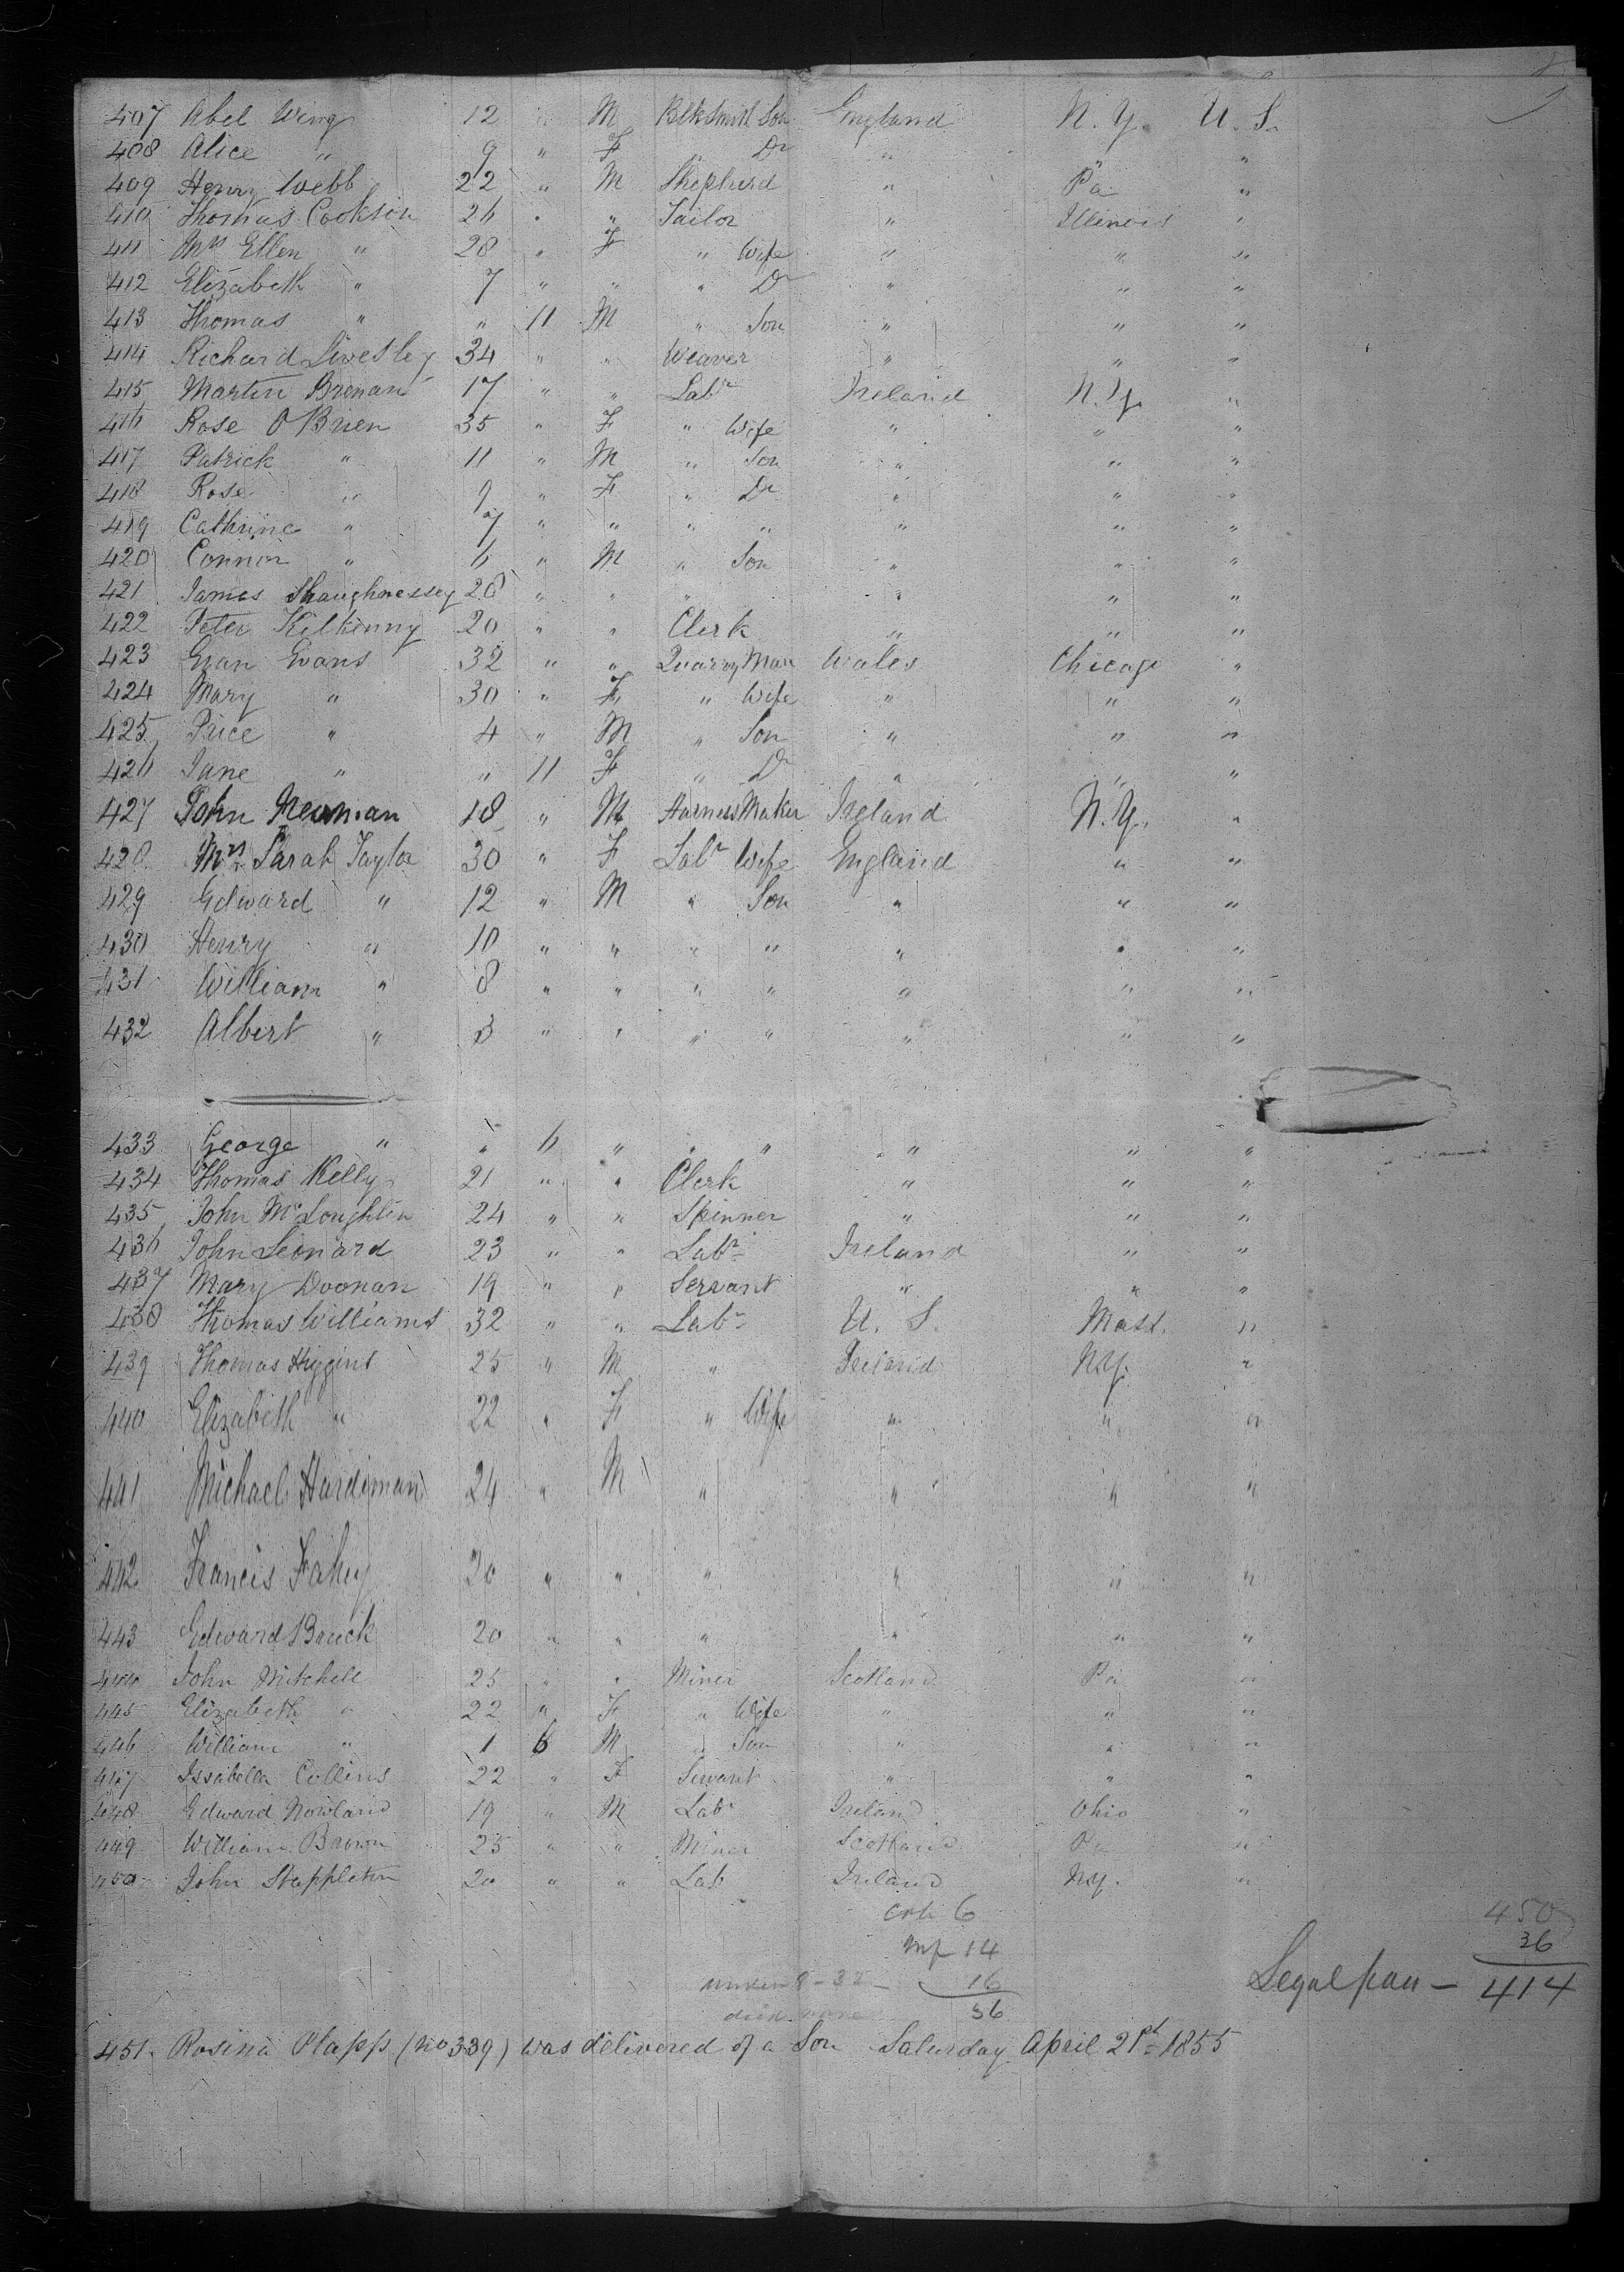 407 Abel Wing 12 " M Blk Smith Son England N. Y. U. S.
408 Alice " 9 " F Dr " " "
409 Henry Webb 22 " M Shepherd " Pa "
410 Thomas Cookson 26 " " Tailor " Illinois "
411 Mrs Ellen " 28 " F " Wife " " "
412 Elizabeth " 7 " " " Dr " " "
413 Thomas " " 11 M " Son " " "
414 Richard Livesley 34 " " Weaver " " "
415 Martin Brenan 17 " " Labr Ireland N. Y. "
416 Rose O Brien 35 " F " Wife " " "
417 Patrick " 11 " M " Son " " "
418 Rose " 9 " F " Dr " " "
419 Cathrine " 7 " " " " " " "
420 Connor " 6 " M " Son " " "
421 James Shaughnessey 28 " " " " " "
422 Peter Kilkenny 20 " " Clerk " " "
423 Evan Evans 32 " " Quarry Man Wales Chicago "
424 Mary " 30 " F " Wife " " "
425 Price " 4 " M " Son " " "
426 Jane " " 11 F " Dr " " "
427 John Newman 18 " M Harness Maker Ireland N. Y. "
428 Mrs Sarah Taylor 30 " F Labr Wife England " "
429 Edward " 12 " M " Son " " "
430 Henry " 10 " " " " " " "
431 William " 8 " " " " " " "
432 Albert " 3 " " " " " " "
433 George " " 6 " " " " " "
434 Thomas Kelly 21 " " Clerk " " "
435 John McLoughlin 24 " " Spinner " " "
436 John Leonard 23 " " Labr Ireland " "
437 Mary Doonan 19 " " Servant " " "
438 Thomas Williams 32 " " Labr U. S. Mass. "
439 Thomas Higgins 25 " M " Ireland N.Y. "
440 Elizabeth " 22 " F " Wife " " "
441 Michael Hardiman 24 " M " " " "
442 Francis Fahey 20 " " " " " "
443 Edward 20 " " " " " "
444 John Mitchell 25 " " Miner Scotland Pa "
445 Elizabeth " 22 " F " Wife " " "
446 William " 1 6 M " Son " " "
447 Issabella Collins 22 " F Servant " " "
448 Edward Nowland 19 " M Labr Ireland Ohio "
449 William Brown 25 " " Miner Scotland Pa "
450 John Stappleton 20 " " Lab Ireland N.Y. "
6 450
14 36
under 8 - 32 - 16 Legal pass - 414
died none 36
451. Rosina Plapp (No 339) was delivered of a Son Saturday April 21st 1855